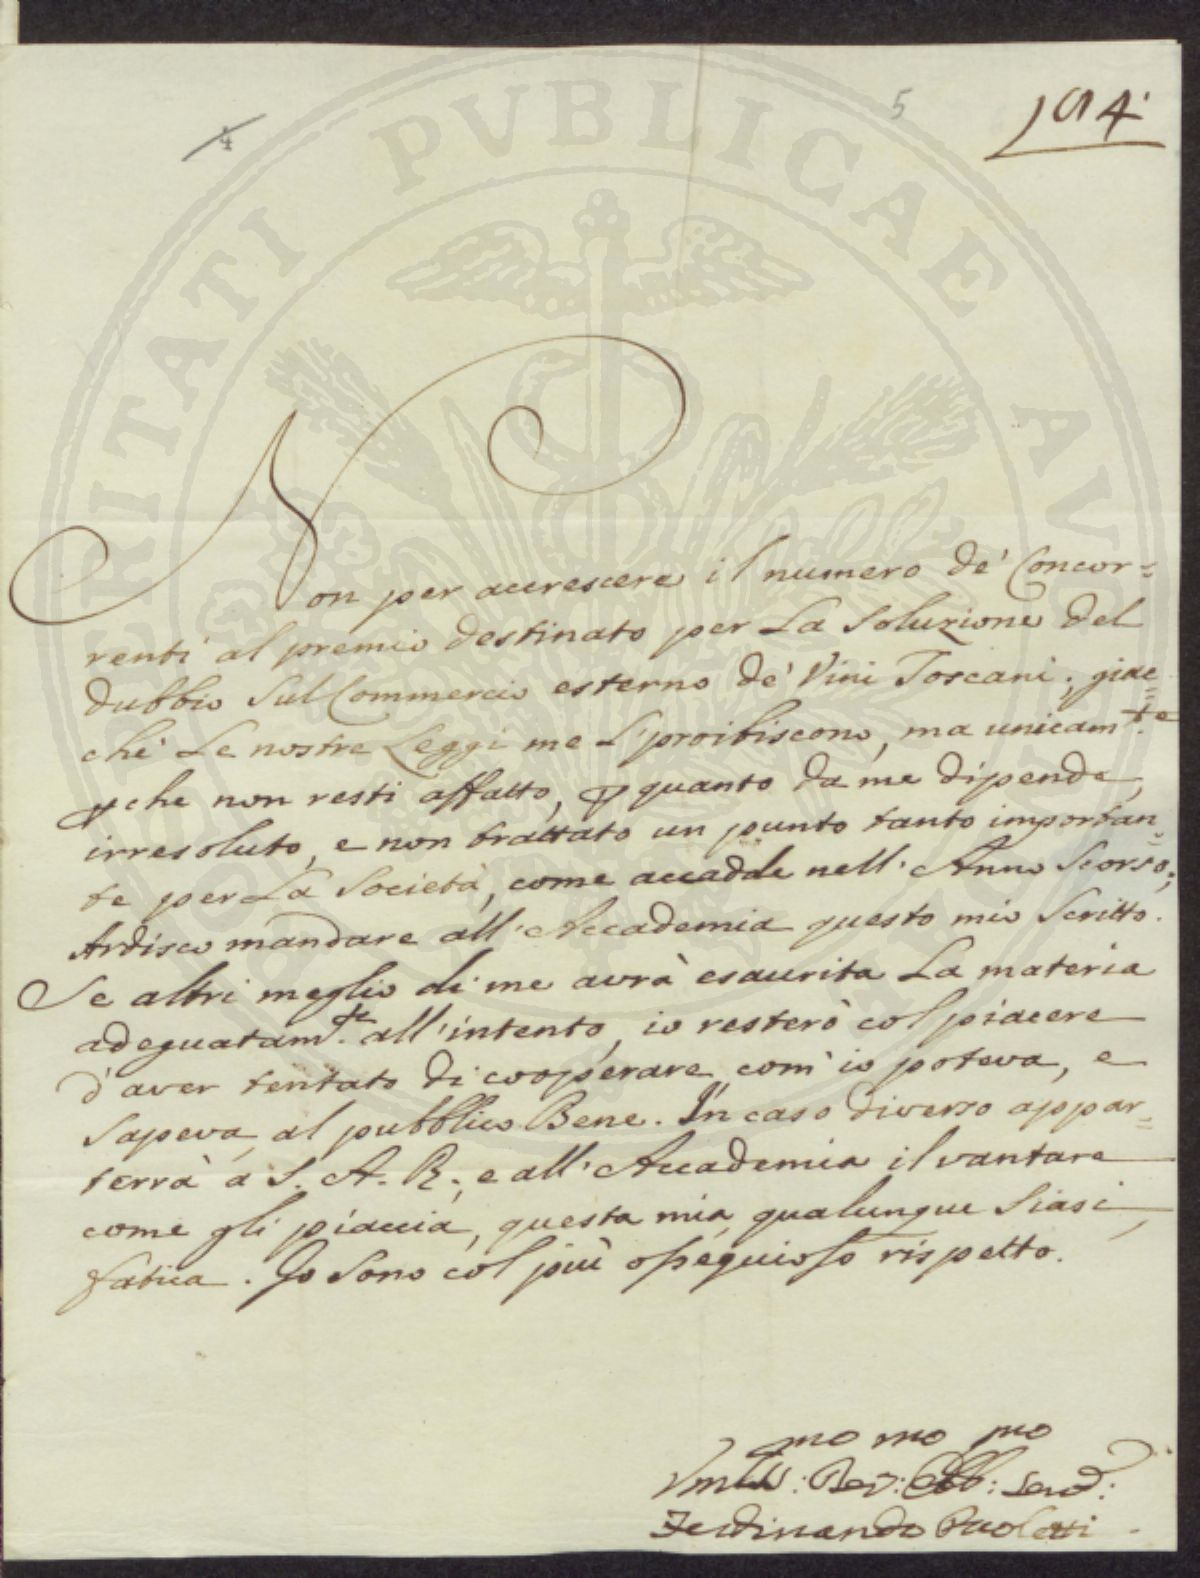 4
5
194.
Non per accrescere il numero de' Concor=
renti al premio destinato per La Soluzione del
dubbio Sul Commercio esterno de' Vini Toscani; giac=
chè Le nostre Leggi me l'proibiscono, ma unicam.te
pche non resti affatto, p quanto da me dipende,
irresoluto, e non trattato un punto tanto importan=
te per La Società, come accadde nell'Anno Scorso;
Ardisco mandare all'Accademia questo mio Scritto.
Se altri meglio di me avrà esaurita La materia
adeguatam.te all'intento, io resterò col piacere
d'aver tentato di cooperare com'io poteva, e
Sapeva, al pubblico Bene. In caso diverso appar=
terrà a S. A. R., e all'Accademia il vantare
come gli piaccia, questa mia qualunque Siasi,
fatica. Io Sono col più ossequioso rispetto.
mo mo mo
Dev: Obb: Serv:
Ferdinando Paoletti
PUBLICAE